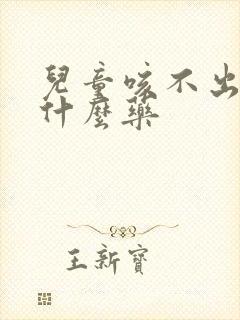 兒童咳不出
什麼藥
王新寶